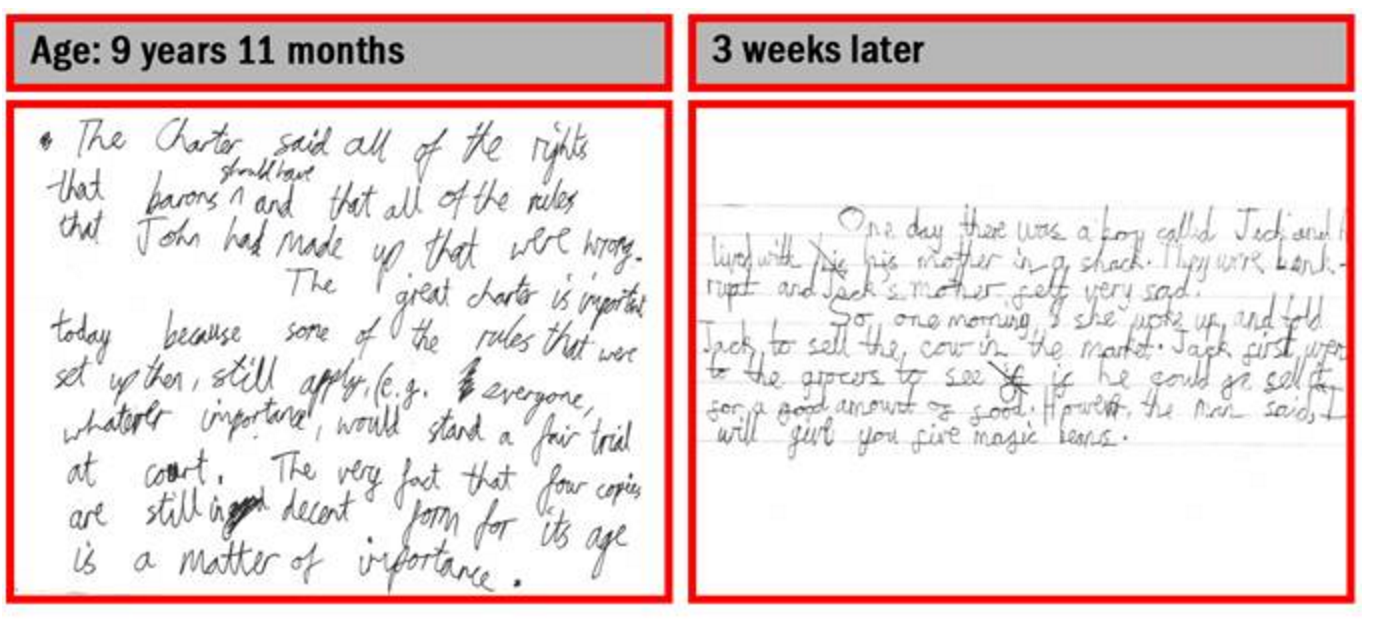 Age: 9 years 11 months
The Charter said all of the rights
should have
that barons ^ and that all of the rules
that John had made up that were wrong.
The great charter is important
today because some of the rules that were
set up then, still apply, (e.g. everyone,
whatever importance, would stand a fair trial
at court. The very fact that four copies
are still in decent form for its age
is a matter of importance.
3 weeks later
One day there was a boy called Jack and h
lived with his mother in a shack. They were bank-
rupt and Jack's mother felt very sad.
So one morning, she woke up and told
Jack to sell the cow in the market. Jack first wen
to the grocers to see if he could sell it
for a good amount of food. However, the man said, I
will give you five magic beans.